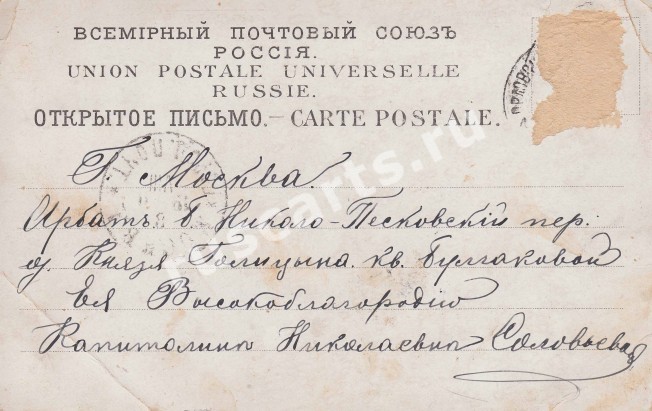 ВСЕМІРНЫЙ ПОЧТОВЫЙ СОЮЗЪ
РОССІЯ.
UNION POSTALE UNIVERSELLE
RUSSIE.
ОТКРЫТОЕ ПИСЬМО.—CARTE POSTALE.
Г. Москва.
Арбатъ. б. Николо-Песковскій пер.
д. Князя Голицына. кв. Булгаковой
Ея Высокоблагородію
Капитолинѣ Николаевнѣ Соловьевой
ruscarts.ru